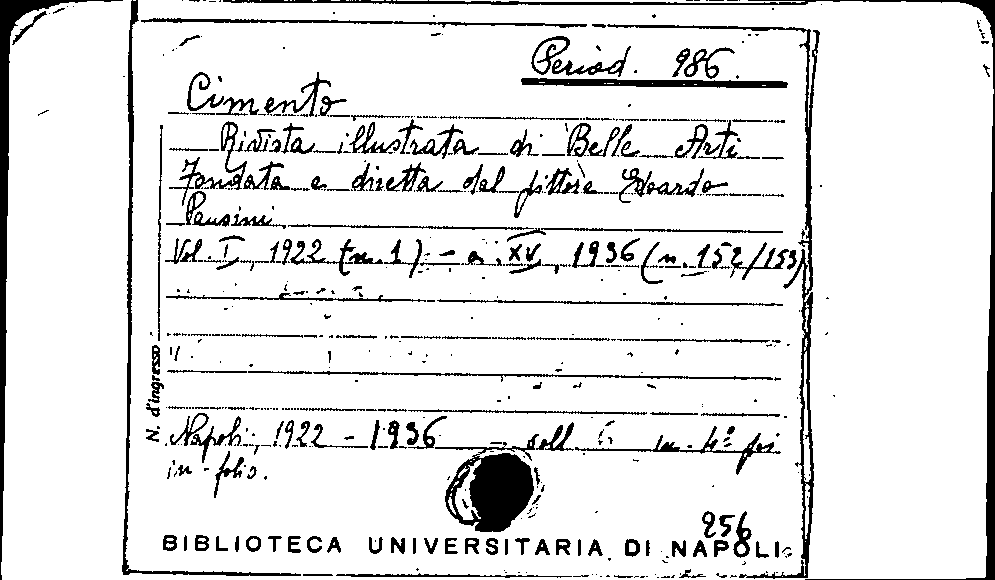 Period. 986.
Cimento
Rivista illustrata di Belle Arti
Fondata e diretta dal pittore Edoardo
Pansini
Vol. I, 1922 (n. 1) - a. XV, 1936 (n. 152/153)
N. d'ingresso
Napoli, 1922 - 1936 - voll. 6 in-4º poi
in-folio.
256
BIBLIOTECA UNIVERSITARIA DI NAPOLI